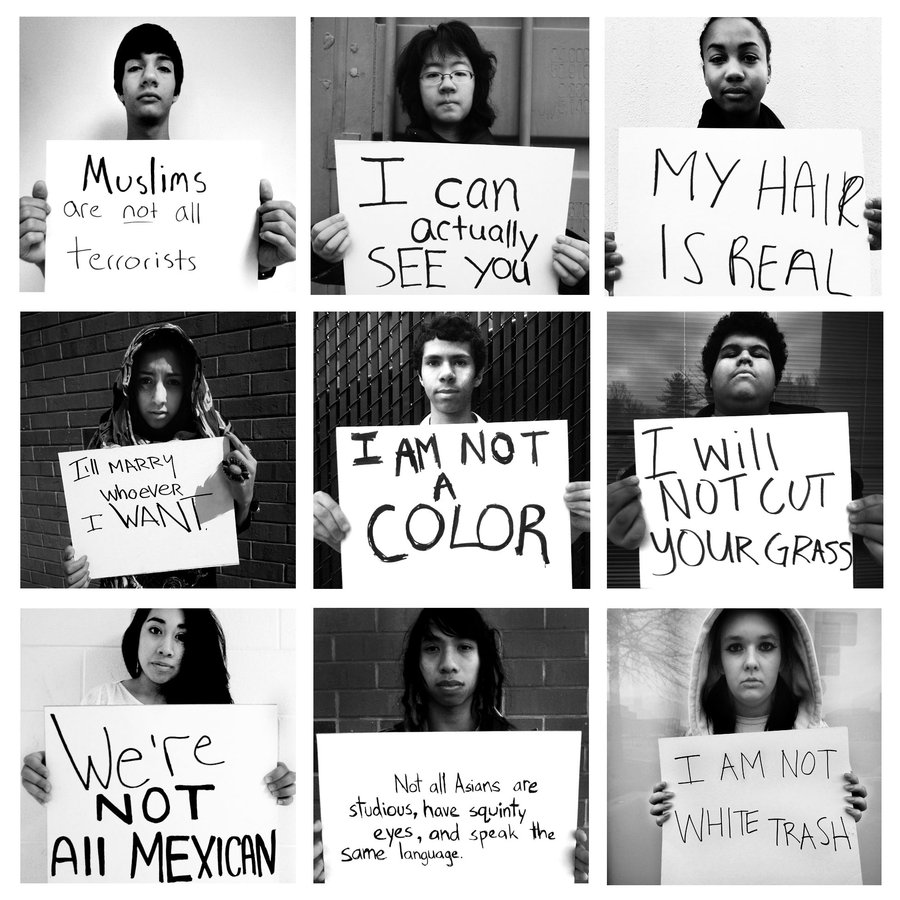 Muslims
are not all
terrorists
I can
actually
SEE you
MY HAIR
IS REAL
I'll MARRY
Whoever
I WANT.
I AM NOT
A
COLOR
I Will
NOT CUT
YOUR GRASS
We're
NOT
All MEXICAN
Not all Asians are
studious, have squinty
eyes, and speak the
same language.
I AM NOT
WHITE TRASH